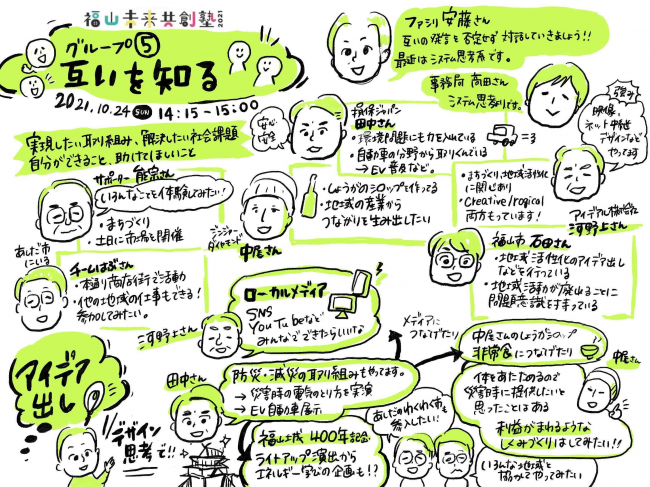 福山未来共創塾 2021
グループ⑤
互いを知る
2021.10.24 SUN 14:15-15:00
実現したい取り組み、解決したい社会課題
自分ができること、助けてほしいこと
ファシリ 安藤さん
互いの発言を否定せず対話していきましょう!!
最近はシステム思考系です。
事務局 高田さん
システム思考よりです。
強み
映像、
ネット中継
デザインなど
やってます
安心
安全
損保ジャパン
田中さん
・環境問題にも力を入れている
・自動車の分野から取りくんでいる
→EV普及など。
・まちづくり、地域活性化
に関心あり
・Creative/logical
両方もっています!
河野上さん
サポーター 能宗さん
いろんなことを体験してみたい!
・まちづくり
・土日に市場を開催
ジンジャー
ダイヤモンド
中尾さん
・しょうがのシロップを作ってる
・地域の産業から
つながりを生み出したい
福山市 石田さん
・地域活性化のアイデア出し
などを行っている
・地域活動が廃れることに
問題意識を持っている
チームはぶさん
・本通り商店街で活動
・他の地域の仕事もできる!
参加してみたい。
ローカルメディア
SNS
YouTubeなど
みんなでできたらいいな
河野上さん
メディアに
つなげたり
アイデア
出し
デザイン
思考で!!
田中さん
防災・減災の取り組みもやってます。
→災害時の電気のとり方を実演
→EV自動車展示
福山城400年記念
ライトアップ演出から
エネルギー学びの企画も!?
あしだのわくわく市も
参入したい!
中尾さんのしょうがシロップ
非常食につなげたり
中尾さん
体をあたためるので
災害時に提供したいと
思ったことはある
利益がまわるような
しくみづくりはしてみたい!!
いろんな地域と
協力してやってみたい